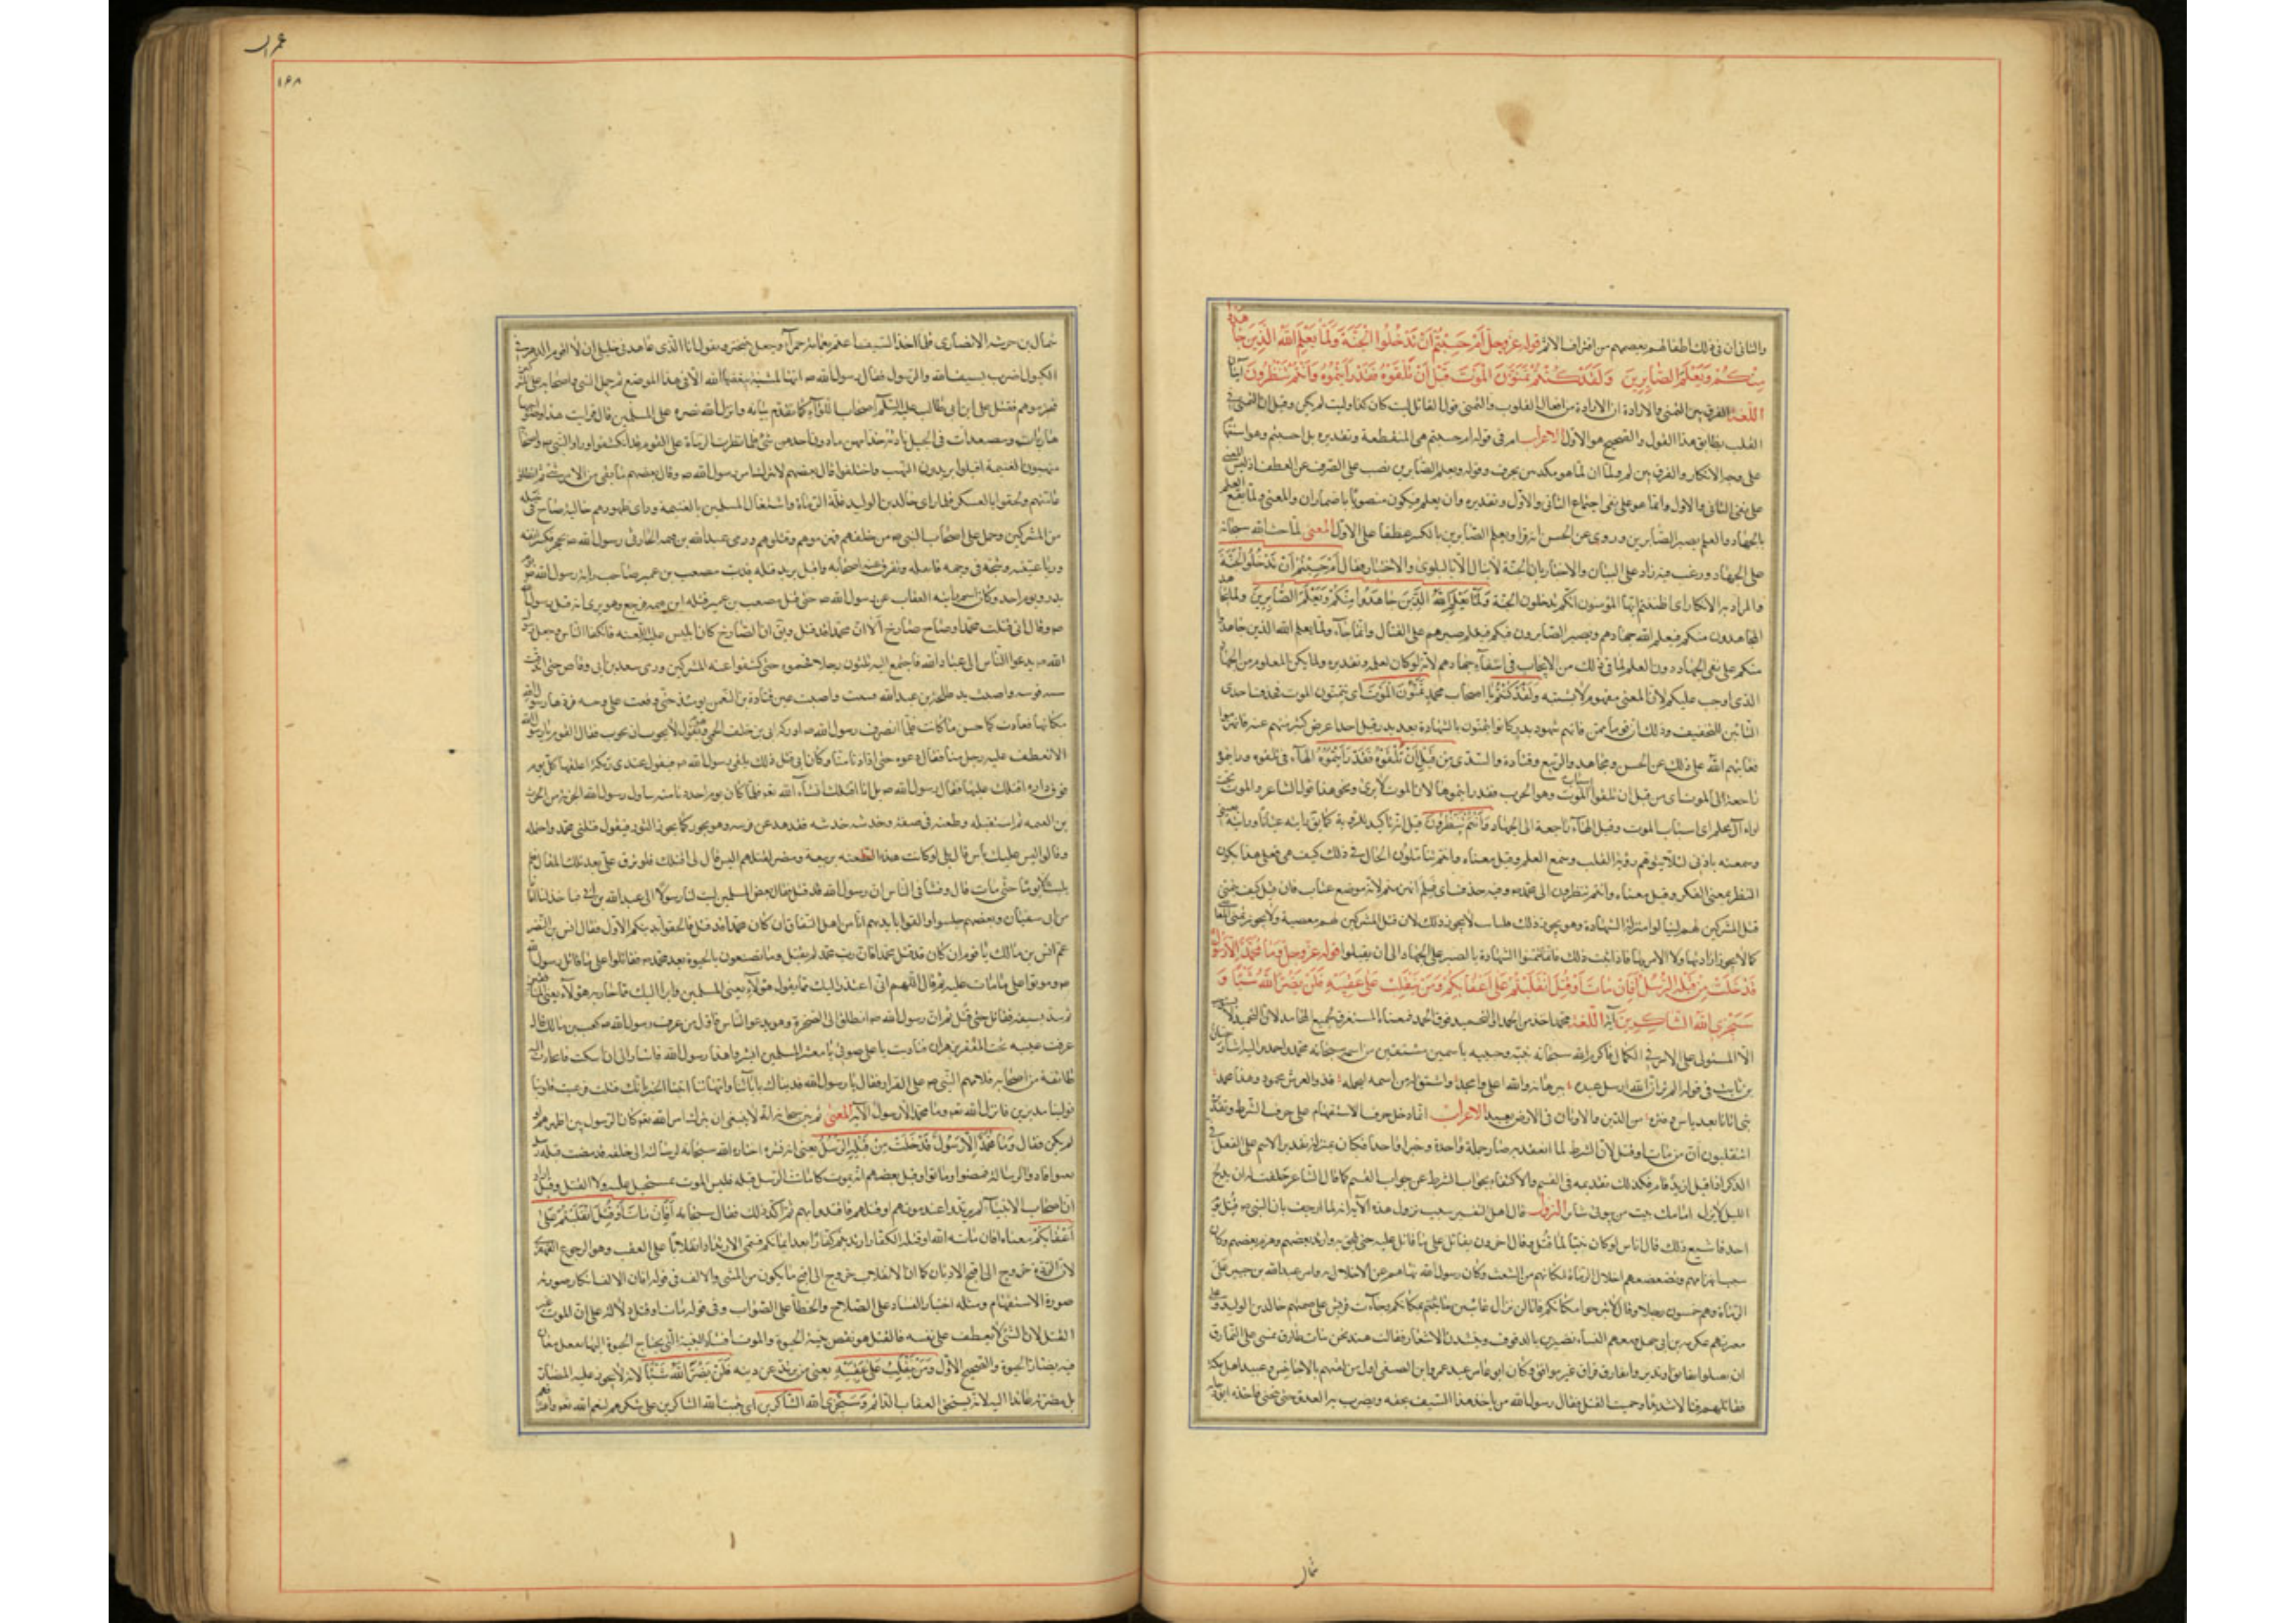 والثانى ان فى ذلك اطفا لهم بعضهم من اقتراف الاثم قوله عز وجل أَمْ حَسِبْتُمْ أَنْ تَدْخُلُوا الْجَنَّةَ وَلَمَّا يَعْلَمِ اللهُ الَّذِينَ جَاهَدُوا
مِنْكُمْ وَيَعْلَمَ الصَّابِرِينَ وَلَقَدْ كُنْتُمْ تَمَنَّوْنَ الْمَوْتَ مِنْ قَبْلِ أَنْ تَلْقَوْهُ فَقَدْ رَأَيْتُمُوهُ وَأَنْتُمْ تَنْظُرُونَ آيتان
اللغة الفرق بين التمنى والارادة ان الارادة من افعال القلوب والتمنى قول القائل ليت كان كذا وليت لم يكن وقيل ان التمنى معنى فى
القلب يطابق هذا القول والصحيح هو الاول الاعراب ام فى قوله ام حسبتم هى المنقطعة وتقديره بل احسبتم وهو استفهام
على وجه الانكار والفرق بين لم ولما ان لما هو مؤكد من بحرف وقوله ويعلم الصابرين نصب على الصرف عن العطف اذ ليس المعنى
على نفى الثانى والاول وانما هو على نفى اجتماع الثانى والاول وتقديره وان يعلم فيكون منصوبا باضمار ان والمعنى ولما يقع العلم
بالجهاد والعلم بصبر الصابرين وروى عن الحسن انه قرأ ويعلم الصابرين بالكسر عطفا على الاول المعنى لما حث الله سبحانه
على الجهاد ورغب فيه زاد على البيان والاخبار بان الجنة لا ينال الا بالبلوى والاختبار فقال أَمْ حَسِبْتُمْ أَنْ تَدْخُلُوا الْجَنَّةَ
والمراد به الانكار اى اظننتم ايها المؤمنون انكم تدخلون الجنة وَلَمَّا يَعْلَمِ اللهُ الَّذِينَ جَاهَدُوا مِنْكُمْ وَيَعْلَمَ الصَّابِرِينَ
المجاهدون منكم فيعلم الله جهادهم ويصبر الصابرون فيكم فيعلم صبرهم على القتال وانما جاء ولما يعلم الله الذين جاهدوا
منكم على نفى الجهاد دون العلم لما فى ذلك من الايجاز فى انتفاء جهادهم لانه لو كان لعلمه وتقديره ولما يكن المعلوم من الجهاد
الذى اوجب عليكم لان المعنى مفهوم لا يشتبه وَلَقَدْ كُنْتُمْ يا اصحاب محمد تَمَنَّوْنَ الْمَوْتَ اى تتمنون الموت فحذف احدى
التائين للتخفيف وذلك ان قوما ممن فاتهم شهود بدر كانوا يتمنون بالشهادة بعد بدر قبل احد
فعاتبهم الله على ذلك عن الحسن ومجاهد والربيع وقتادة والسدى مِنْ قَبْلِ أَنْ تَلْقَوْهُ فَقَدْ رَأَيْتُمُوهُ الهاء فى تلقوه
راجعة الى الموت اى من قبل ان تلقوا اسباب الموت وهو الحرب فقد رايتموها لان الموت لا يرى ونحو هذا قول الشاعر
اى اسباب الموت وقيل الهاء راجعة الى الجهاد وَأَنْتُمْ تَنْظُرُونَ قيل انه تاكيد للرؤية كما يق رايته عيانا ورايته بعينى
وسمعته باذنى لئلا يتوهم رؤية القلب وسمع العلم وقيل معناه وانتم تتاملون الحال فى ذلك كيف هى فعلى هذا يكون
النظر بمعنى الفكر وقيل معناه وانتم تنظرون الى محمد وفيه حذف اى فلم انهزمتم لانه موضع عتاب فان قيل كيف يتمنى
قتل المشركين لهم لينالوا منزلة الشهادة وهو يجوز ذلك قلنا لا يجوز ذلك لان قتل المشركين لهم معصية ولا يجوز تمنى المعاصى
كما لا يجوز ارادتها ولا الامر بها فاذا ثبت ذلك فانما تمنوا الشهادة بالصبر على الجهاد الى ان يقتلوا قوله عز وجل وَمَا مُحَمَّدٌ إِلَّا رَسُولٌ
قَدْ خَلَتْ مِنْ قَبْلِهِ الرُّسُلُ أَفَإِنْ مَاتَ أَوْ قُتِلَ انْقَلَبْتُمْ عَلَى أَعْقَابِكُمْ وَمَنْ يَنْقَلِبْ عَلَى عَقِبَيْهِ فَلَنْ يَضُرَّ اللهَ شَيْئًا وَ
سَيَجْزِي اللهُ الشَّاكِرِينَ آية اللغة محمد اخذ من الحمد والتحميد فوق الحمد فمعناه المستغرق لجميع المحامد لان التحميد لا يستوجبه
الا المستولى على الامر فى الكمال فاكرم الله سبحانه نبيه وحبيبه باسمين مشتقين من اسمه سبحانه محمد واحمد واليه اشار حسان
بن ثابت فى قوله الم تر ان الله ارسل عبده ببرهانه والله اعلى وامجد وشق له من اسمه ليجله فذو العرش محمود وهذا محمد
نبى اتانا بعد ياس وفترة من الدين والاوثان فى الارض تعبد الاعراب انما دخل حرف الاستفهام على حرف الشرط وتقديره
اتنقلبون ان مات او قتل لان الشرط لما انعقد به صار جملة واحدة وخبرا واحدا فكان بمنزلة تقديم الاسم على الفعل فى
الذكر اذا قيل ازيد قام فكذلك تقديمه فى القسم والاكتفاء بجواب الشرط عن جواب القسم كما قال الشاعر حلفت له ان يدلج
الليل لا يزل امامك بيت من بيوتى سائر النزول قال اهل التفسير سبب نزول هذه الآية انه لما ارجف بان النبى ص قتل يوم
احد فاشيع ذلك قال اناس لو كان نبيا لما قتل وقال آخرون نقاتل على ما قاتل عليه حتى نلحق به وارتد بعضهم وانهزم بعضهم وكان
سبب انهزامهم وتضعضعهم اخلال الرماة لمكانهم من الشعب وكان رسول الله نهاهم عن الاخلال به وامر عبدالله بن جبير على
الرماة وهم خمسون رجلا وقال لا تبرحوا مكانكم فانا لن نزال غالبين ما ثبتم مكانكم وجاءت قريش على ميمنتهم خالد بن الوليد وعلى
ميسرتهم عكرمة بن ابى جهل ومعهم النساء يضربن بالدفوف وينشدن الاشعار فقالت هند نحن بنات طارق نمشى على النمارق
ان تقبلوا نعانق او تدبروا نفارق فراق غير وامق وكان ابو عامر عبد عمرو بن الصيفى اول من لقيهم بالاحابيش وعبيد اهل مكة
فقاتلهم قتالا شديدا وحميت القتل فقال رسول الله من ياخذ هذا السيف بحقه ويضرب به العدو حتى ينحنى فاخذه ابو دجانة
سماك
عمران
١٦٨
سماك بن خرشة الانصارى فلما اخذ السيف اعتم بعمامة حمراء وجعل يتبختر ويقول انا الذى عاهدنى خليلى ان لا اقوم الدهر فى
الكيول اضرب بسيف الله والرسول فقال رسول الله ص انها لمشية يبغضها الله الا فى هذا الموضع ثم حمل النبى واصحابه على المشركين
فهزموهم وقتل على ابن ابى طالب عليه السلم اصحاب اللواء كما تقدم بيانه وانزل الله نصره على المسلمين قال
هاربات ومصعدات فى الجبل فلما نظرت الرماة الى القوم قد انكشفوا وراوا النبى ص واصحابه
ينتهبون الغنيمة اقبلوا يريدون النهب واختلفوا فقال بعضهم لا نترك امر رسول الله ص وقال بعضهم ما بقى من الامر شىء ثم انطلق
عامتهم ولحقوا بالعسكر فلما راى خالد بن الوليد قلة الرماة واشتغال المسلمين بالغنيمة وراى ظهورهم خالية صاح فى خيله
من المشركين وحمل على اصحاب النبى ص من خلفهم فهزموهم وقتلوهم ورمى عبدالله بن قمية الحارثى رسول الله ص بحجر فكسر انفه
ورباعيته وشجه فى وجهه فاثقله وتفرق عنه اصحابه واقبل يريد قتله فذب مصعب بن عمير صاحب راية رسول الله ص يوم
بدر ويوم احد وكان اسم رايته العقاب عن رسول الله ص حتى قتل مصعب بن عمير قتله ابن قمية فرجع وهو يرى انه قتل رسول الله
ص وقال انى قتلت محمدا وصاح صارخ الا ان محمدا قد قتل ويق ان الصارخ كان ابليس عليه اللعنة فانكفا الناس وجعل رسول
الله ص يدعوا الناس الى عباد الله فاجتمع اليه ثلثون رجلا فحموه حتى كشفوا عنه المشركين ورمى سعد بن ابى وقاص حتى اندقت
سية قوسه واصيب يد طلحة بن عبدالله فيبست واصيبت عين قتادة بن النعمن يومئذ حتى وقعت على وجنته فردها رسول الله
مكانها فعادت كاحسن ما كانت فلما انصرف رسول الله ص ادركه ابى بن خلف الجمحى وهو يقول لا نجوت ان نجوت فقال القوم يا رسول الله
الا يعطف عليه رجل منا فقال دعوه حتى اذا دنا منه وكان ابى قبل ذلك يلقى رسول الله ص فيقول عندى رمكة اعلفها كل يوم
فرق ذرة اقتلك عليها فقال رسول الله ص بل انا اقتلك انشاء الله تعا فلما كان يوم احد ودنا منه تناول رسول الله الحربة من الحرث
بن الصمة ثم استقبله وطعنه فى عنقه وخدشه خدشة فتدهده عن فرسه وهو يخور كما يخور الثور فيقول قتلنى محمد واحتمله
وقالوا ليس عليك باس قال بلى لو كانت هذه الطعنة بربيعة ومضر لقتلتهم اليس قال لى اقتلك فلو بزق على بعد تلك المقالة قتلنى فلم
يلبث الا يوما حتى مات قال وفشا فى الناس ان رسول الله قد قتل فقال بعض المسلمين ليت لنا رسولا الى عبدالله بن ابى فياخذ لنا امانا
من ابى سفيان وبعضهم جلسوا والقوا بايديهم وقال اناس من اهل النفاق ان كان محمد قد قتل فالحقوا بدينكم الاول فقال انس بن النضر
عم انس بن مالك يا قوم ان كان قد قتل محمد فان رب محمد لم يقتل وما تصنعون بالحيوة بعد محمد ص فقاتلوا على ما قاتل رسول الله
ص وموتوا على ما مات عليه ثم قال اللهم انى اعتذر اليك مما يقول هؤلاء يعنى المسلمين وابرأ اليك مما جاء به هؤلاء يعنى المنافقين
ثم شد بسيفه فقاتل حتى قتل ثم ان رسول الله ص انطلق الى الصخرة وهو يدعوا الناس فاول من عرف رسول الله ص كعب بن مالك قال
عرفت عينيه تحت المغفر تزهران فناديت باعلى صوتى يا معشر المسلمين ابشروا هذا رسول الله فاشار الى ان اسكت فانحازت اليه
طائفة من اصحابه فلامهم النبى ص على الفرار فقال يا رسول الله فديناك بآبائنا وامهاتنا اتانا الخبر بانك قتلت فرعبت قلوبنا
فولينا مدبرين فانزل الله تعا وما محمد الا رسول الآية المعنى ثم بين سبحانه انه لا ينبغى ان يترك امر الله تعا كان الرسول بين اظهرهم او
لم يكن فقال وَمَا مُحَمَّدٌ إِلَّا رَسُولٌ قَدْ خَلَتْ مِنْ قَبْلِهِ الرُّسُلُ يعنى انه بشر اختاره الله سبحانه لرسالته الى خلقه قد مضت قبله رسل
بعثوا فادوا الرسالة ومضوا وماتوا وقتل بعضهم وانه يموت كما ماتت الرسل قبله فليس الموت بمستحيل عليه ولا القتل وقيل اراد
ان اصحاب الانبياء لم يرتدوا عند موتهم او قتلهم فاقتدوا بهم ثم اكد ذلك فقال سبحانه أَفَإِنْ مَاتَ أَوْ قُتِلَ انْقَلَبْتُمْ عَلَى
أَعْقَابِكُمْ معناه افان اماته الله او قتله الكفار ارتددتم كفارا بعد ايمانكم فسمى الارتداد انقلابا على العقب وهو الرجوع القهقرى
لان الردة خروج الى اقبح الاديان كما ان الانقلاب خروج الى اقبح ما يكون من المشى والالف فى قوله افان الف انكار صورته
صورة الاستفهام ومثله اختيار الفساد على الصلاح والخطأ على الصواب وفى قوله مات او قتل دلالة على ان الموت غير
القتل لان الشىء لا يعطف على نفسه فالقتل هو نقض بنية الحيوة والموت فساد البنية التى يحتاج الحيوة اليها بفعل معان
فيه يضاد الحيوة والصحيح الاول وَمَنْ يَنْقَلِبْ عَلَى عَقِبَيْهِ يعنى من يرتد عن دينه فَلَنْ يَضُرَّ اللهَ شَيْئًا لانه لا يجوز عليه المضار
بل مضرته عائدة اليه لانه يستحق العقاب الدائم وَسَيَجْزِي الله الشاكرين اى يثيب الله الشاكرين على شكرهم لنعم الله تعا